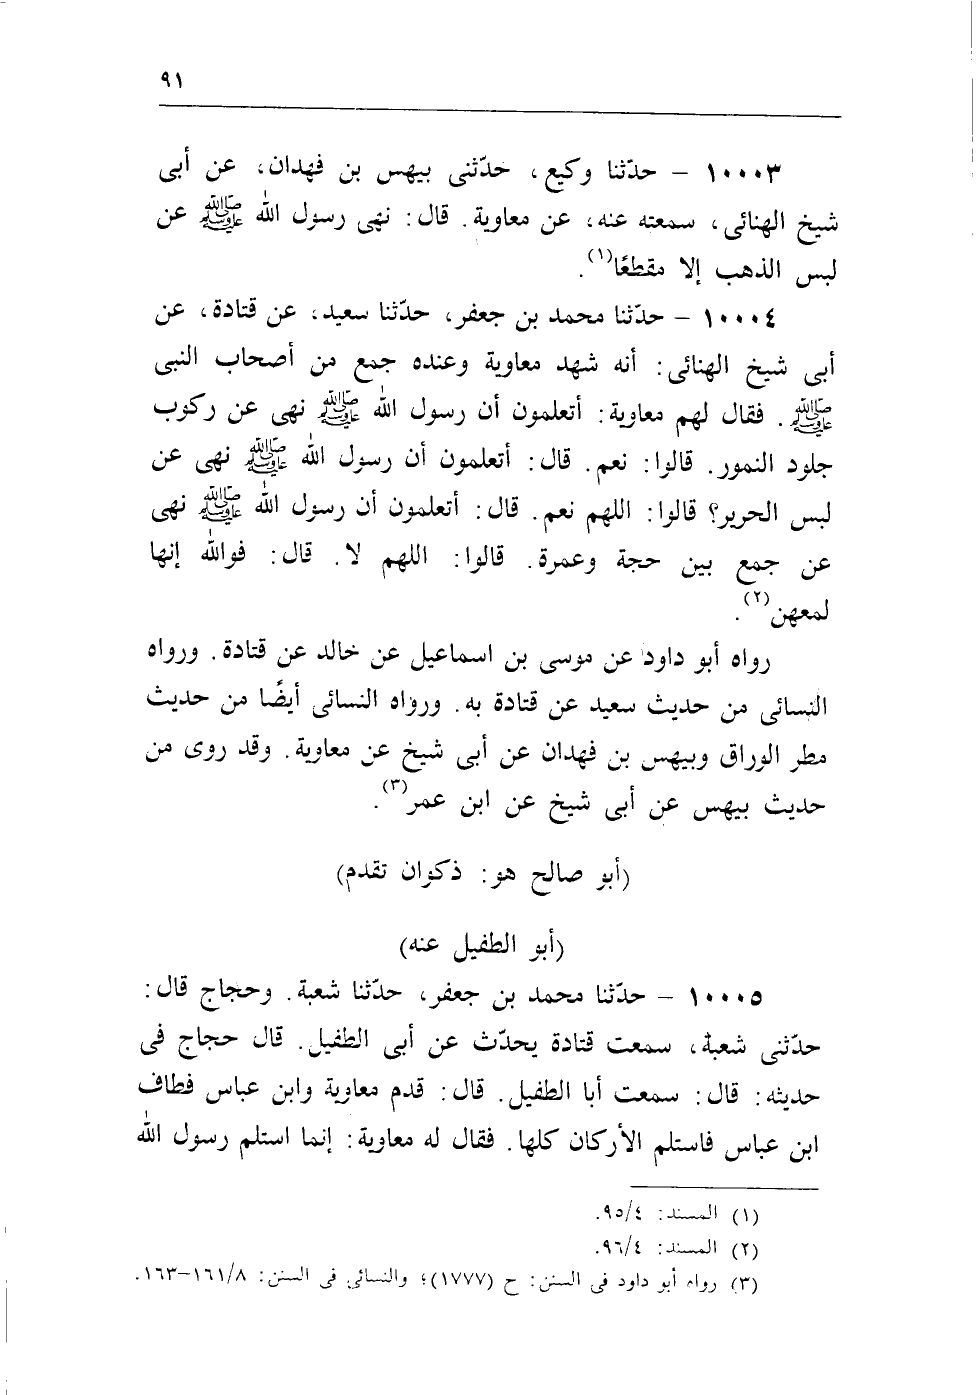 ٩١
١٠٠٠٣ – حدّثنا وكيع، حدّثنى بيهس بن فهدان، عن أبى
شيخ الهنائى، سمعته عنه، عن معاوية. قال: نهى رسول الله ﷺ عن
لبس الذهب إلا مقطعًا(١).
١٠٠٠٤ – حدّثنا محمد بن جعفر، حدّثنا سعيد، عن قتادة، عن
أبى شيخ الهنائى: أنه شهد معاوية وعنده جمع من أصحاب النبى
ﷺ. فقال لهم معاوية: أتعلمون أن رسول الله ﷺ نهى عن ركوب
جلود النمور. قالوا: نعم. قال: أتعلمون أن رسول الله ﷺ نهى عن
لبس الحرير؟ قالوا: اللهم نعم. قال: أتعلمون أن رسول الله ﷺ نهى
عن جمع بين حجة وعمرة. قالوا: اللهم لا. قال: فوالله إنها
لمعهن(٢).
رواه أبو داود عن موسى بن اسماعيل عن خالد عن قتادة. ورواه
النسائى من حديث سعيد عن قتادة به. ورواه النسائى أيضًا من حديث
مطر الوراق وبيهس بن فهدان عن أبى شيخ عن معاوية. وقد روى من
حديث بيهس عن أبى شيخ عن ابن عمر(٣).
(أبو صالح هو: ذكوان تقدم)
(أبو الطفيل عنه)
١٠٠٠٥ – حدّثنا محمد بن جعفر، حدّثنا شعبة. وحجاج قال:
حدّثنى شعبة، سمعت قتادة يحدّث عن أبى الطفيل. قال حجاج فى
حديثه: قال: سمعت أبا الطفيل. قال: قدم معاوية وابن عباس فطاف
ابن عباس فاستلم الأركان كلها. فقال له معاوية: إنما استلم رسول الله
(١) المسند: ٩٥/٤.
(٢) المسند: ٩٦/٤.
(٣) رواه أبو داود فى السنن: ح (١٧٧٧)؛ والنسائى فى السنن: ١٦١/٨–١٦٣.